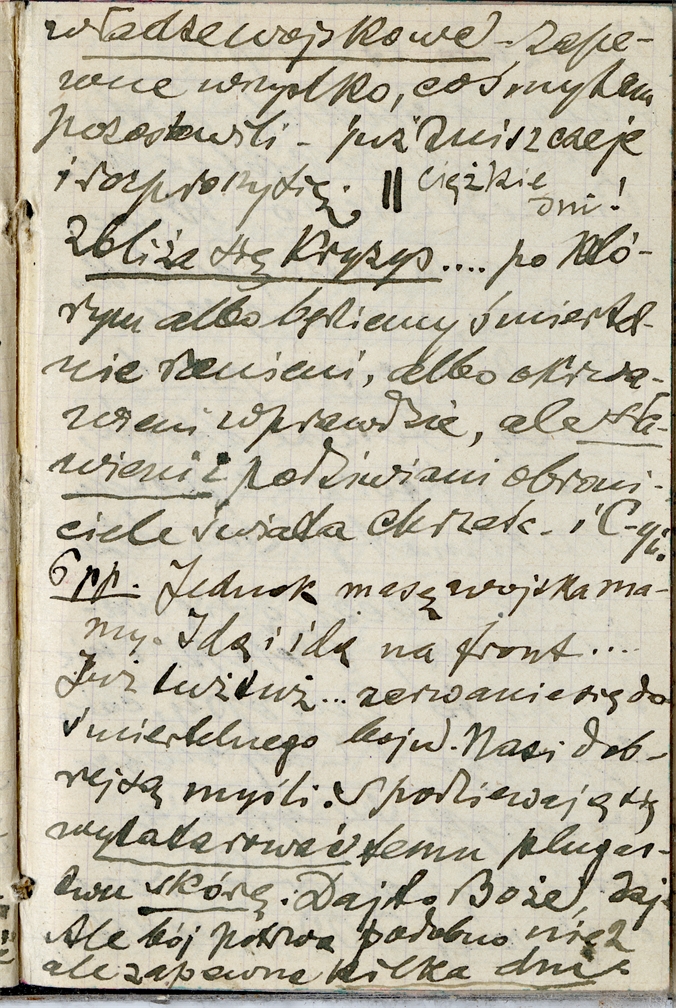 władze wojskowe - zape-
wne wszystko, cośmy tam
pozostawili - już zniszczeje
i rozproszy się. || Ciężkie
dni!
Zbliża się Kryzys.... po któ-
rym albo będziemy śmiertel-
nie ranieni, albo okrwa-
wieni wprawdzie, ale sła-
wieni i podziwiani obroni-
ciele świata chrześc. - i C-yi.
6 pp. Jednak masę wojska ma-
my. Idą i idą na front ....
Już tuż tuż... zerwanie się do
śmiertelnego boju. Nasi dob-
rej są myśli. Spodziewają się
wytatarować temu plugas-
twu skórę. Daj to Boże, daj.
Ale bój potrwa podobno nież
ale zapewne kilka dni.